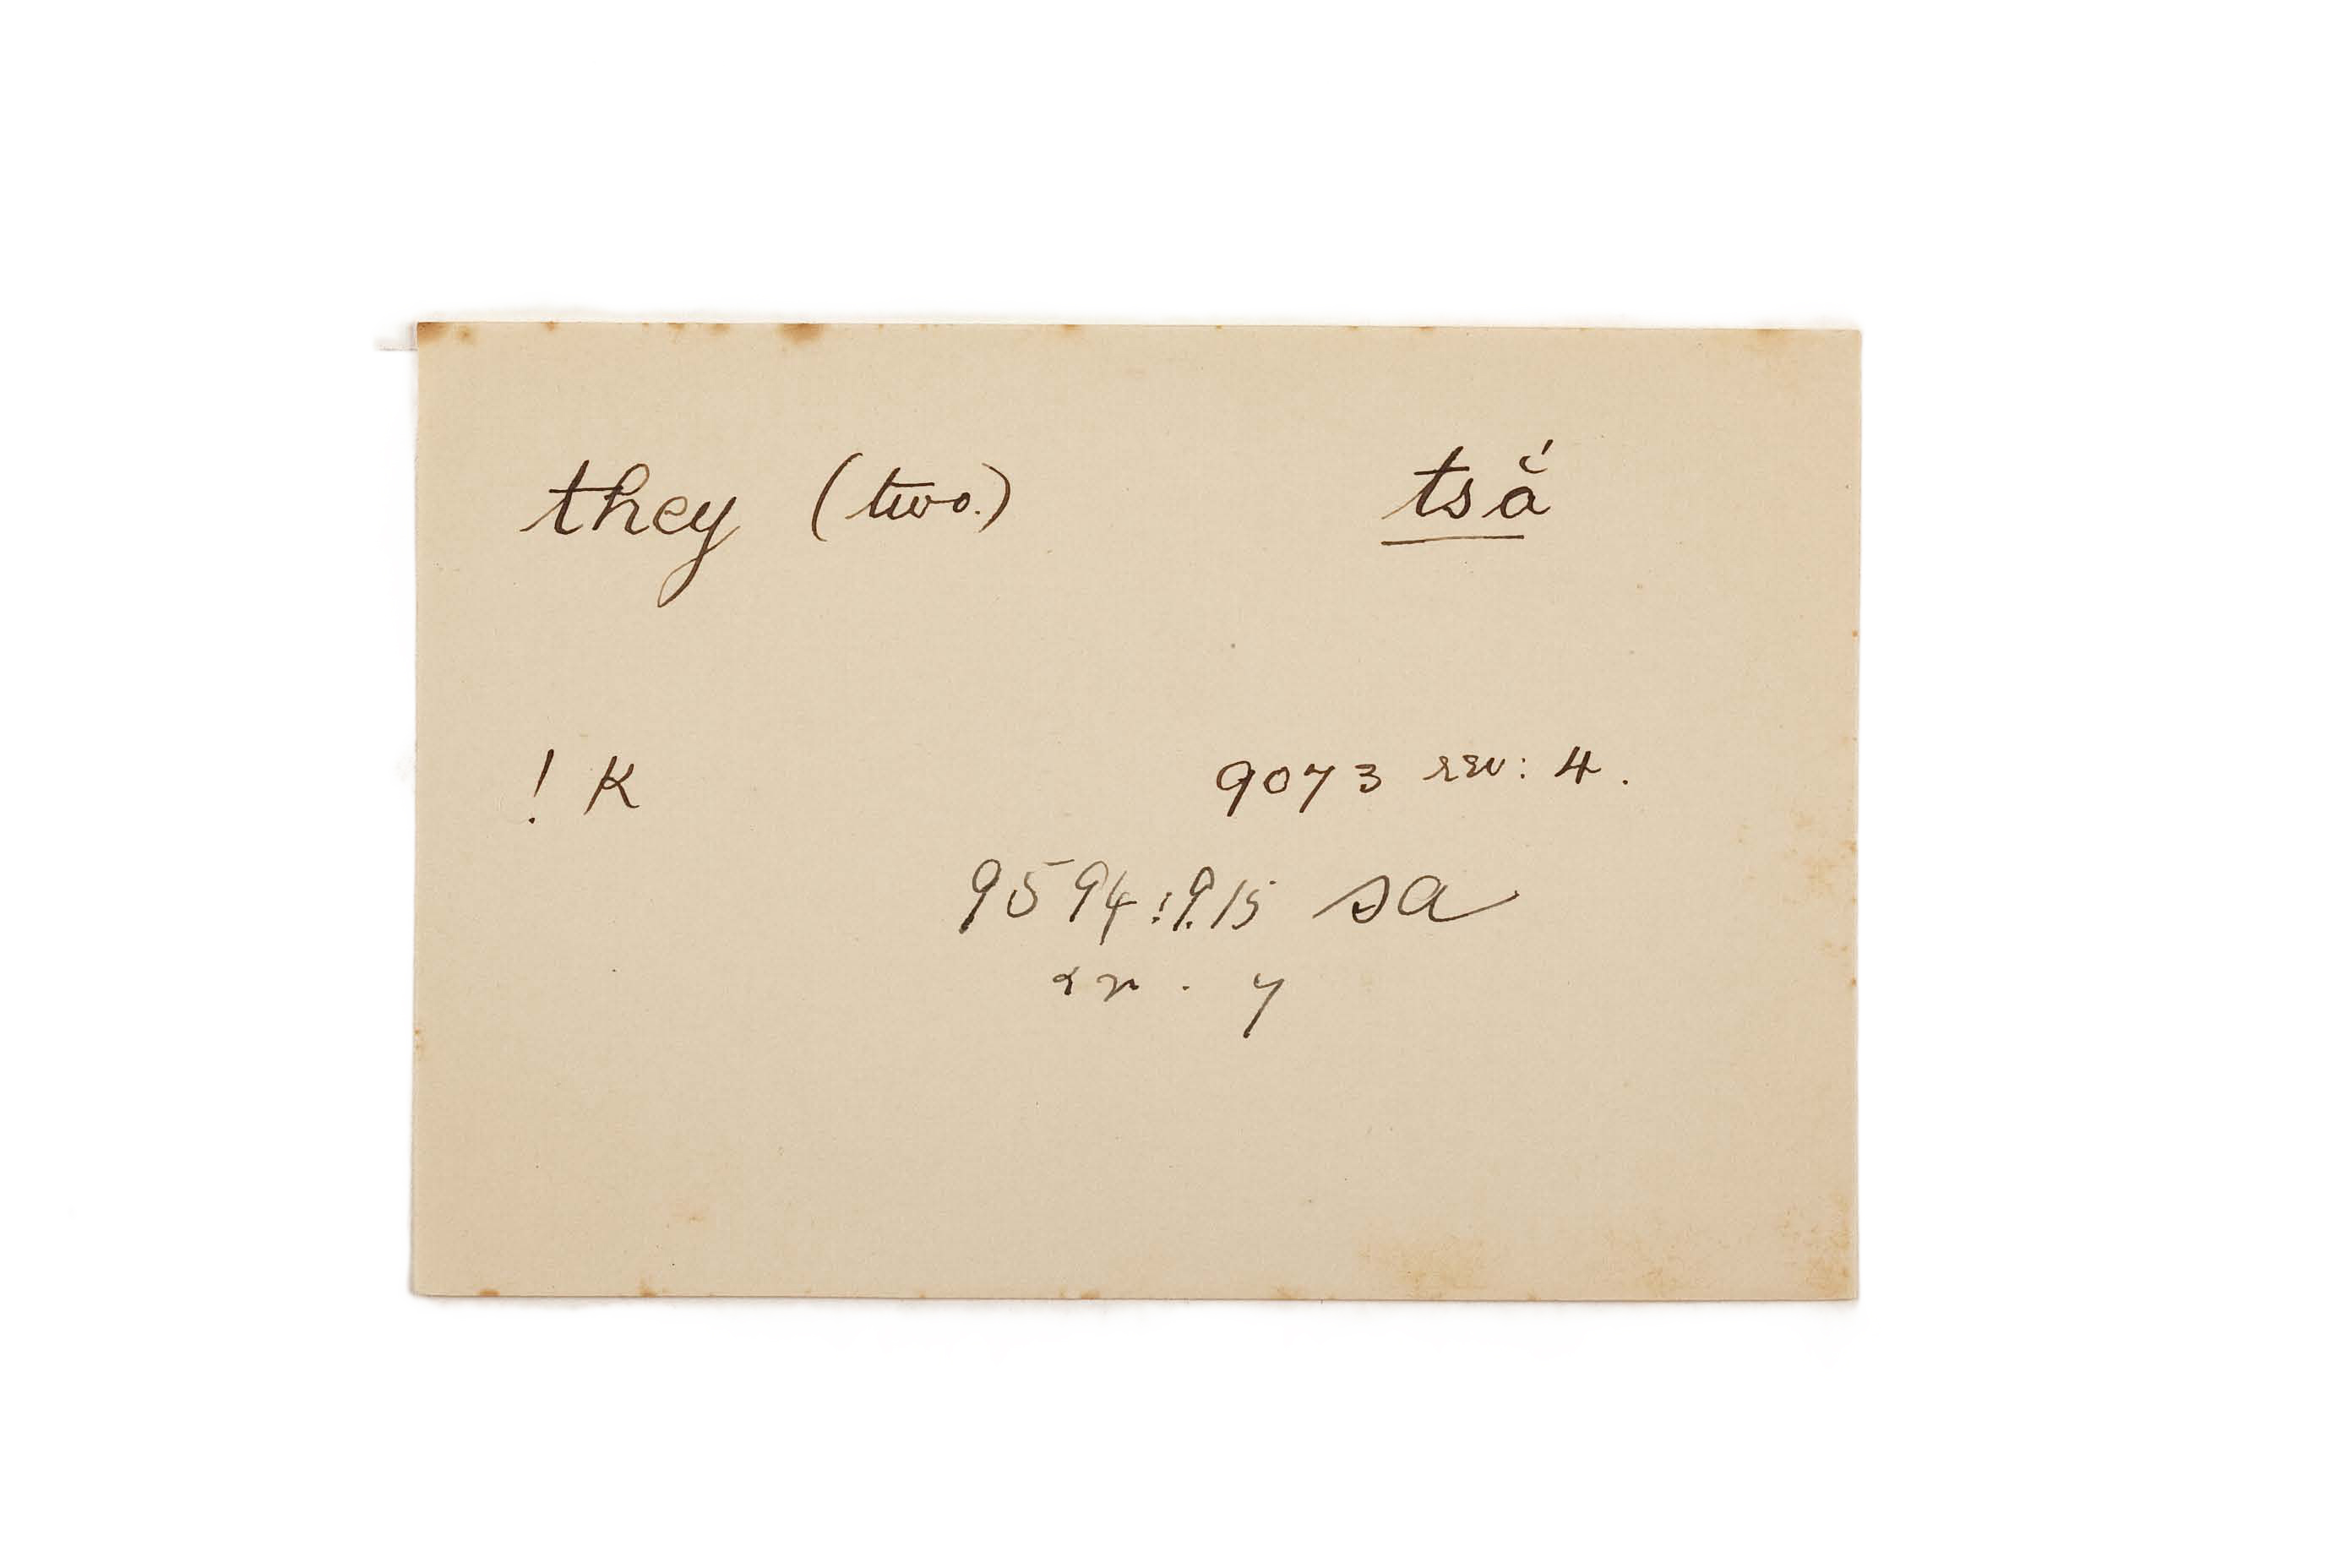 they (two.) tsắ
! K 9073 rev: 4.
9594:9.15 sa
rev. 7